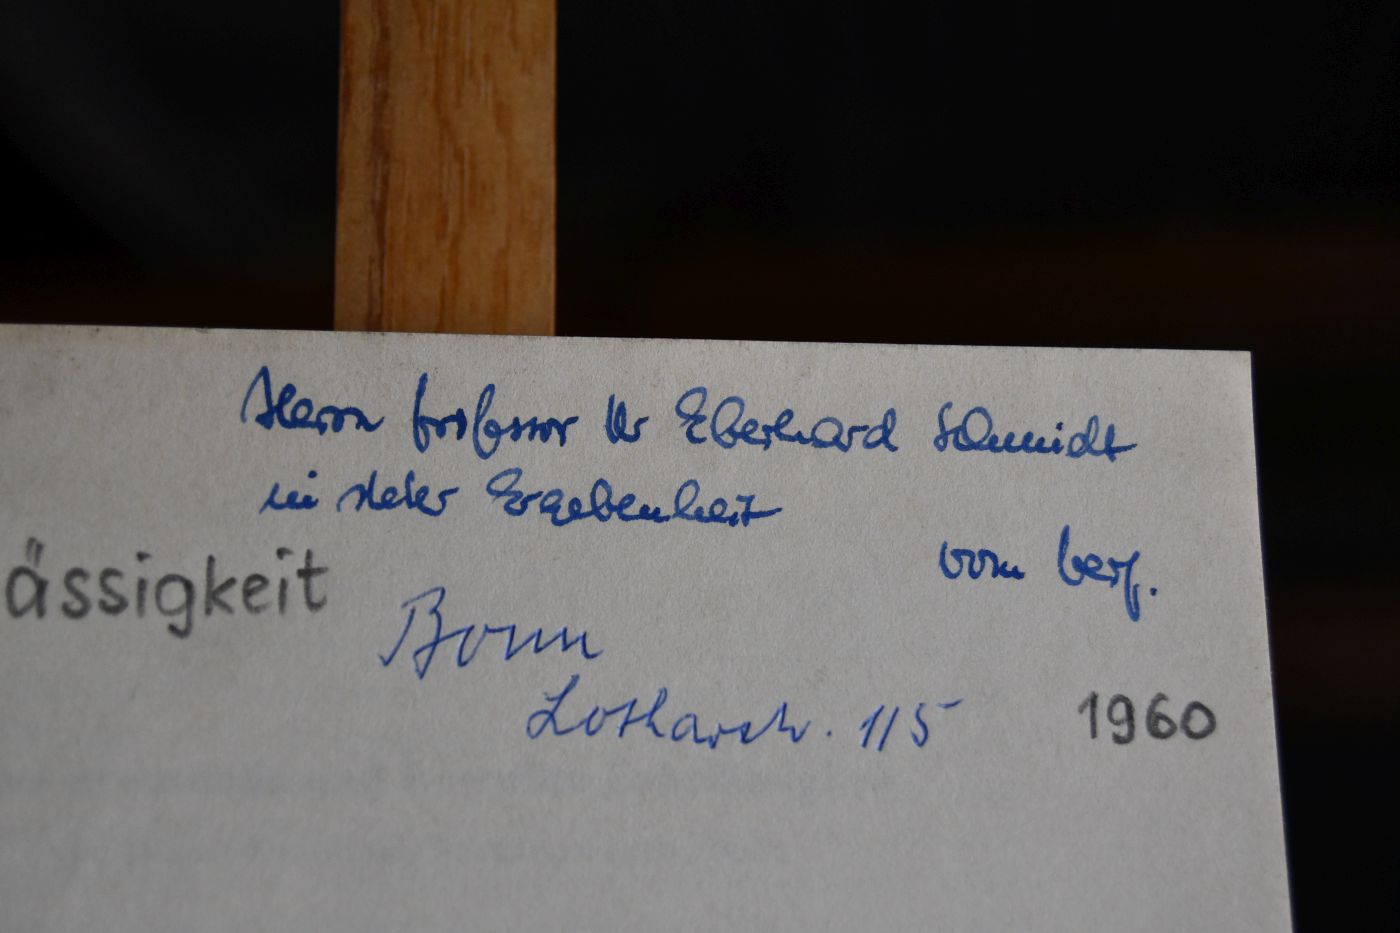 Herrn Professor Dr Eberhard Schmidt
in steter Ergebenheit
vom Verf.
ässigkeit
Bonn
Lotharstr. 115
1960